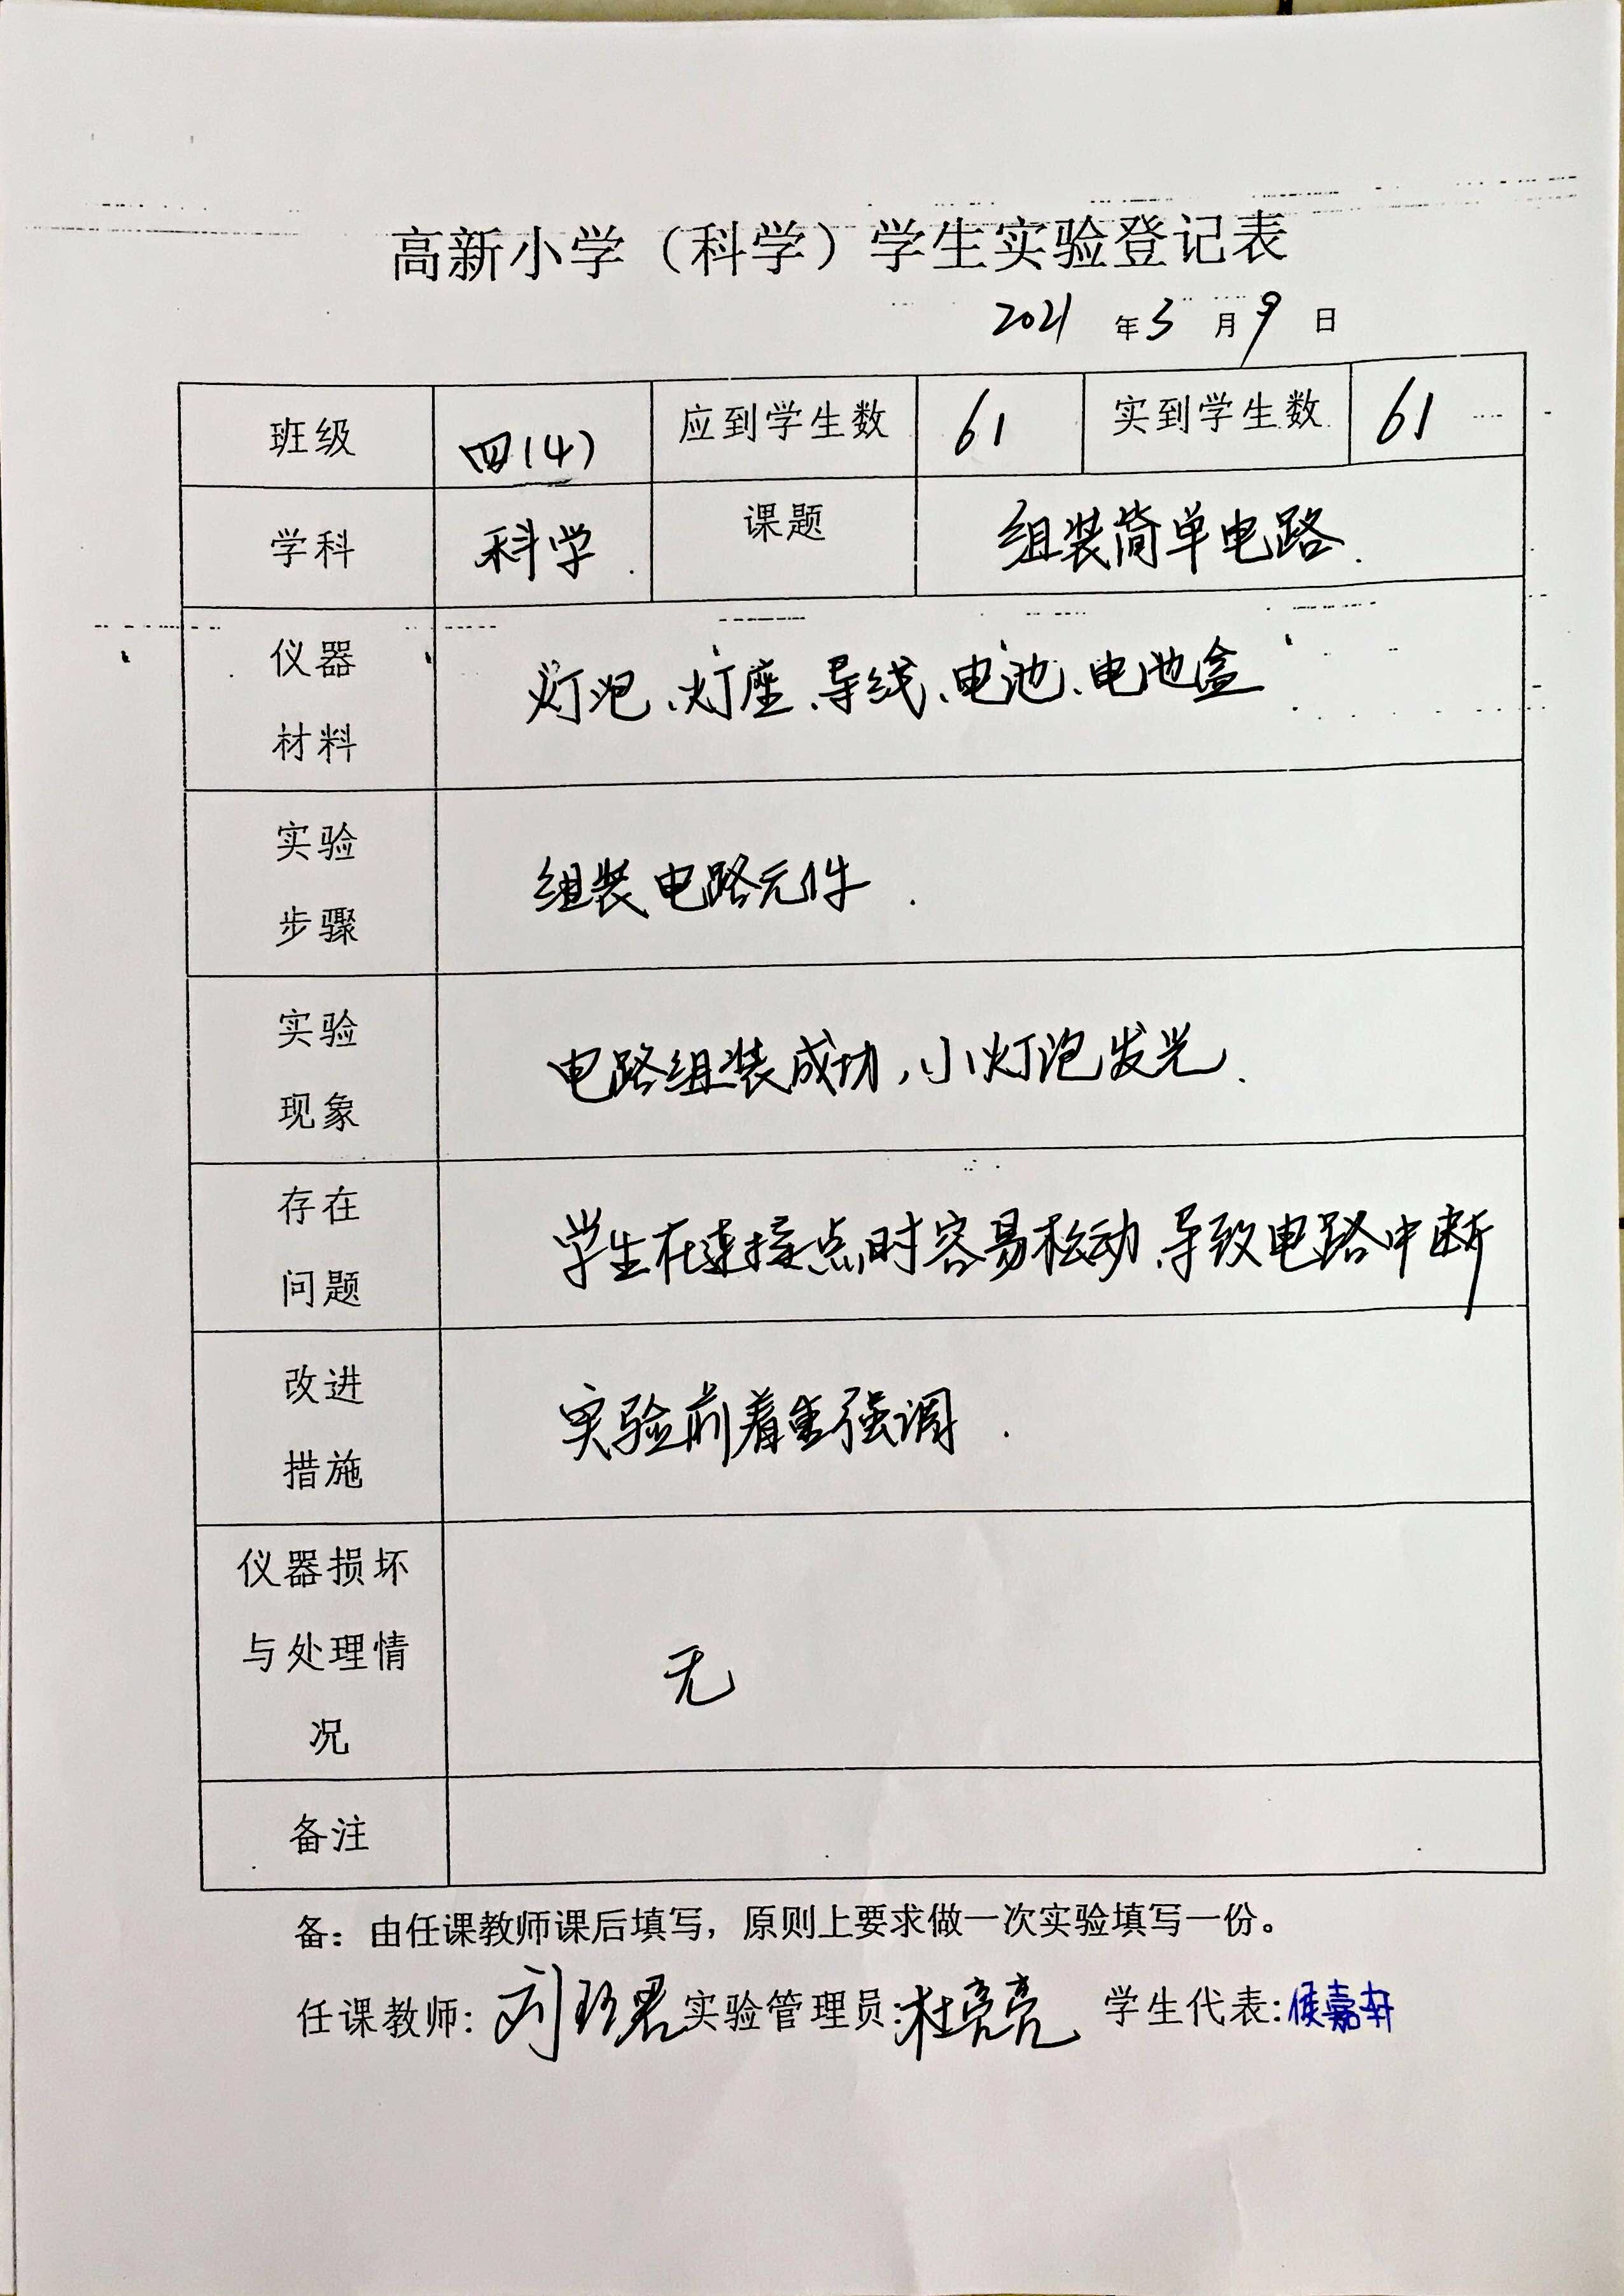 高新小学（科学）学生实验登记表
2021 年 3 月 9 日
班级 四(4) 应到学生数 61 实到学生数 61
学科 科学 课题 组装简单电路.
仪器
材料
灯泡、灯座、导线、电池、电池盒
实验
步骤
组装电路元件.
实验
现象
电路组装成功,小灯泡发光.
存在
问题
学生在连接点时容易松动、导致电路中断
改进
措施
实验前着重强调.
仪器损坏
与处理情
况
无
备注
备：由任课教师课后填写，原则上要求做一次实验填写一份。
任课教师: 刘 君 实验管理员: 杜亮亮 学生代表: 侯嘉轩